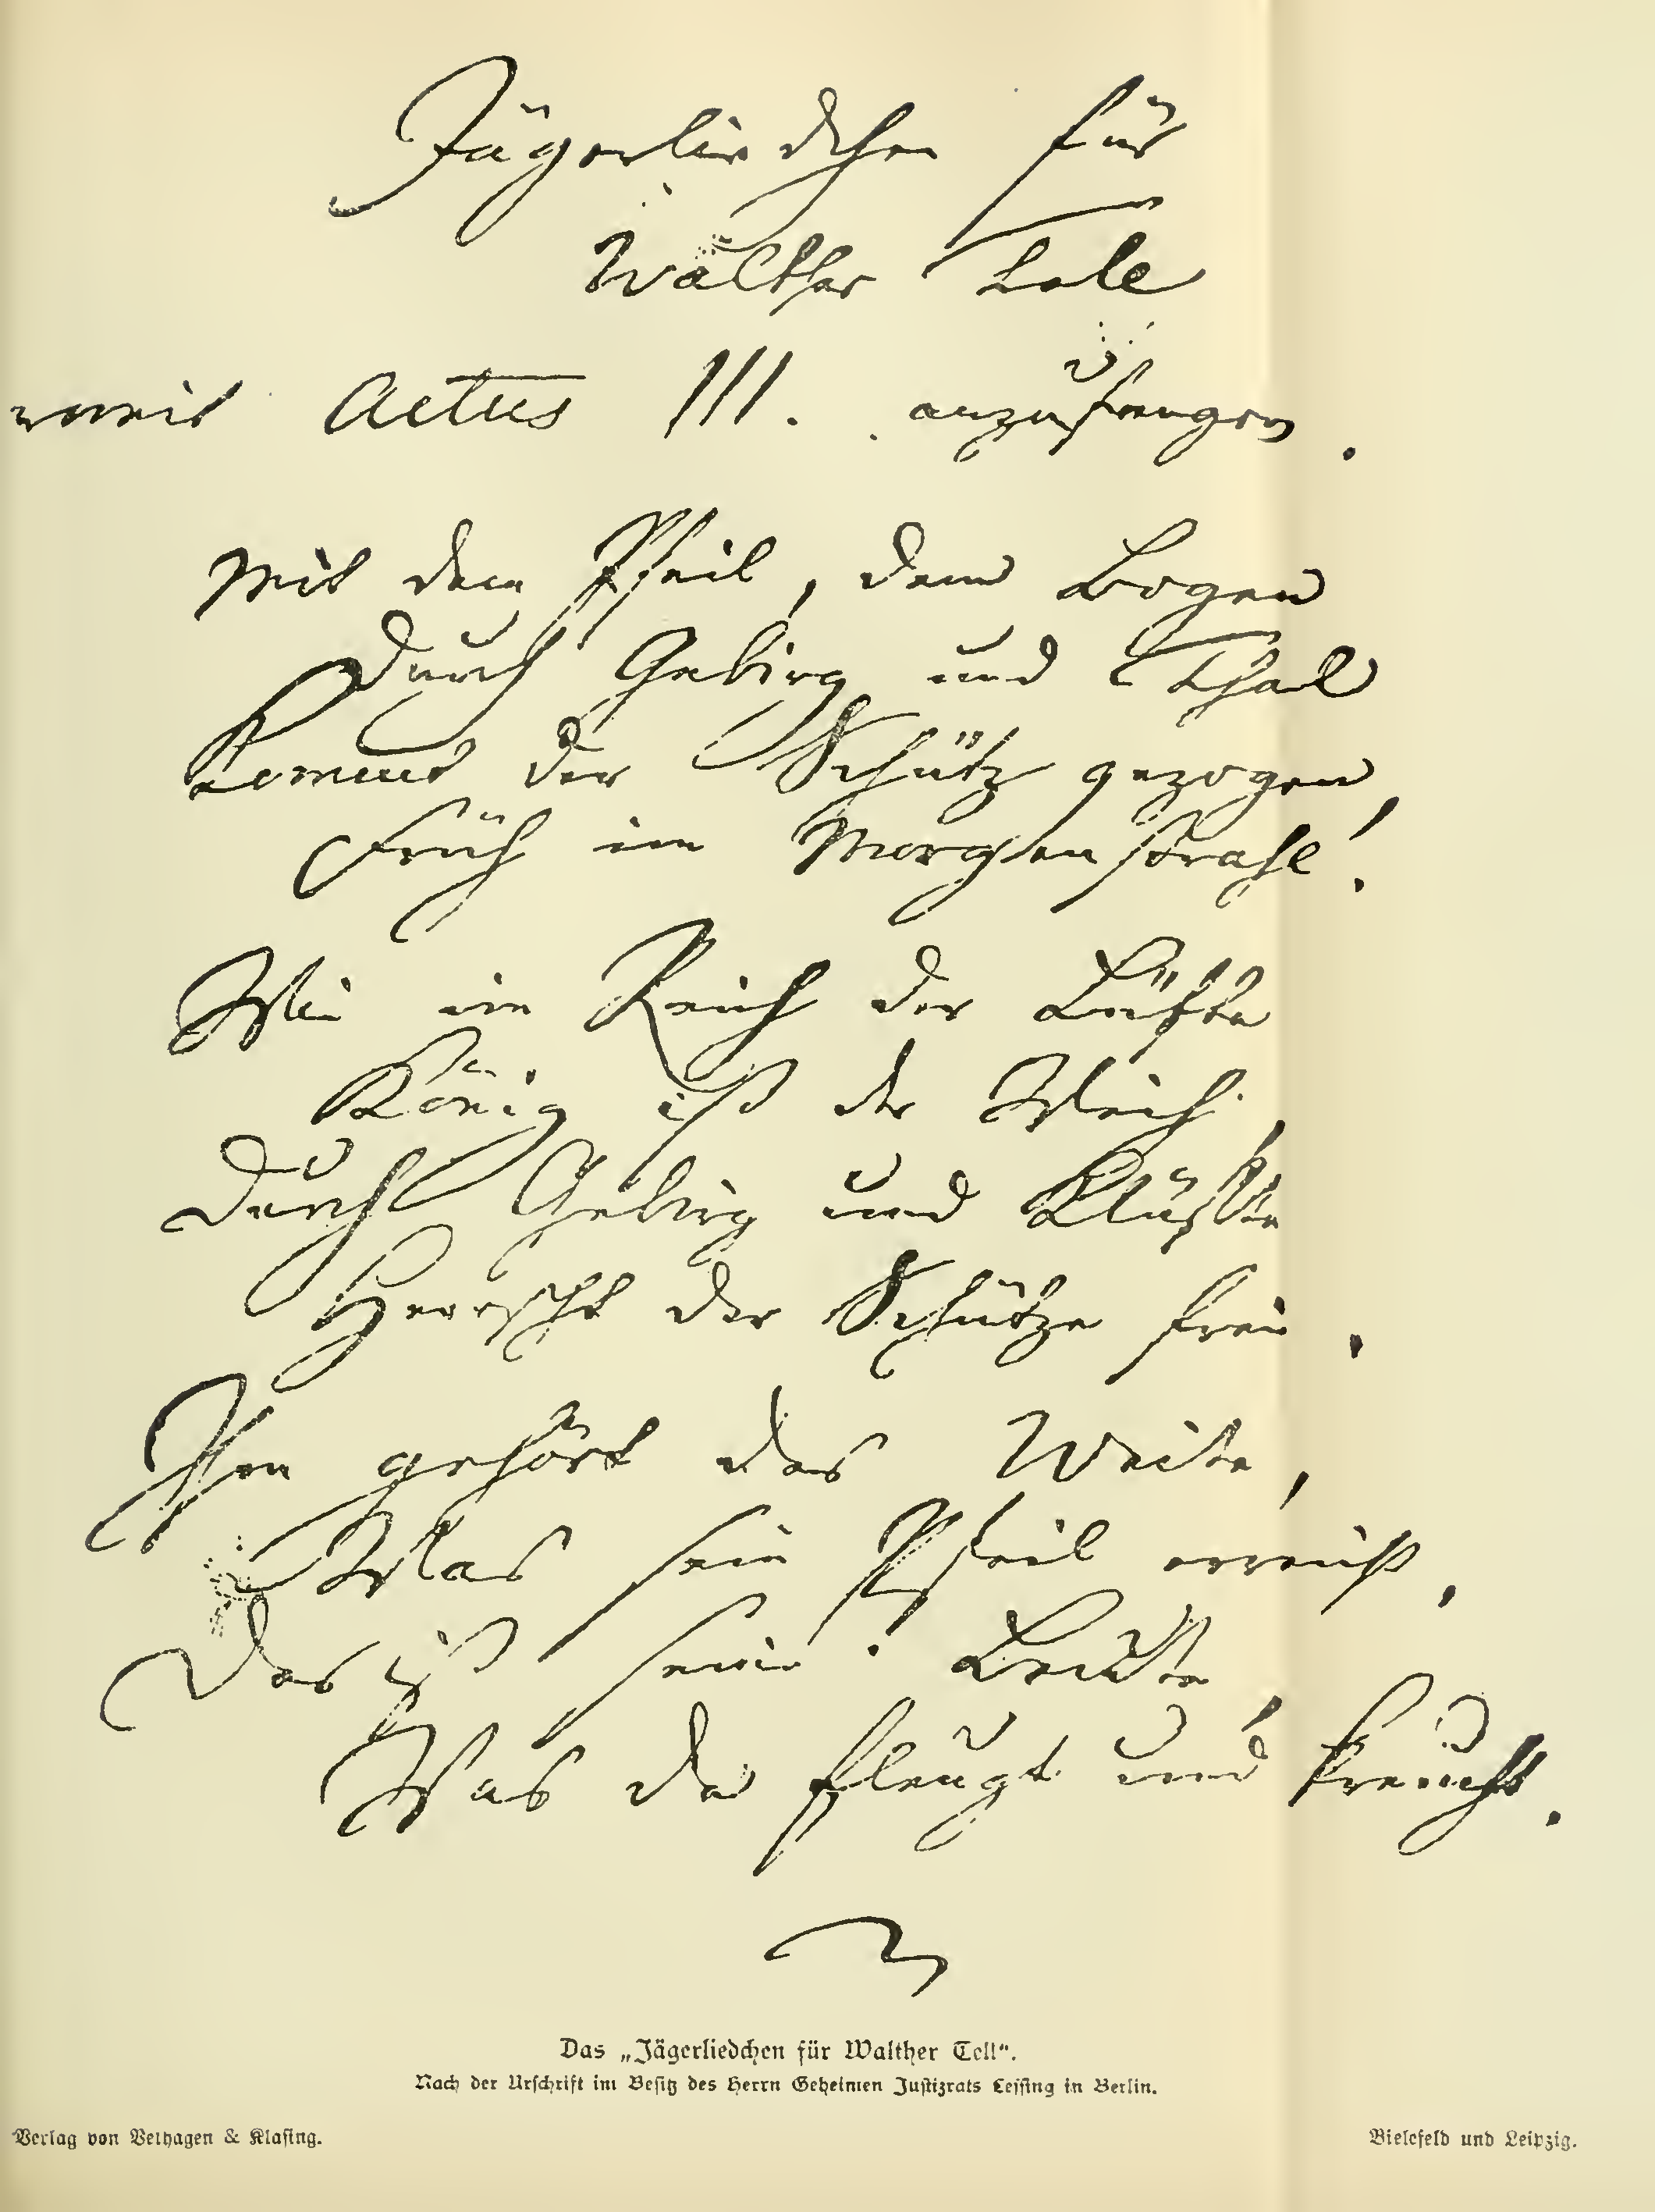 Jägerliedchen für
Walther Tell
womit Actus III. anzufangen.
Mit dem Pfeil, dem Bogen
Durch Gebirg und Thal
Kommt der Schütz gezogen
Früh im Morgenstrahl!
Wie im Reich der Lüfte
König ist der Weih,
Durch Gebirg und Klüfte
Herrscht der Schütze frei,
Ihm gehört das Weite,
Was sein Pfeil erreicht,
Das ist seine Beute,
Was da fleugt und kreucht.
Das „Jägerliedchen für Walther Tell“.
Nach der Urschrift im Besitz des Herrn Geheimen Justizrats Lessing in Berlin.
Verlag von Velhagen & Klasing.
Bielefeld und Leipzig.